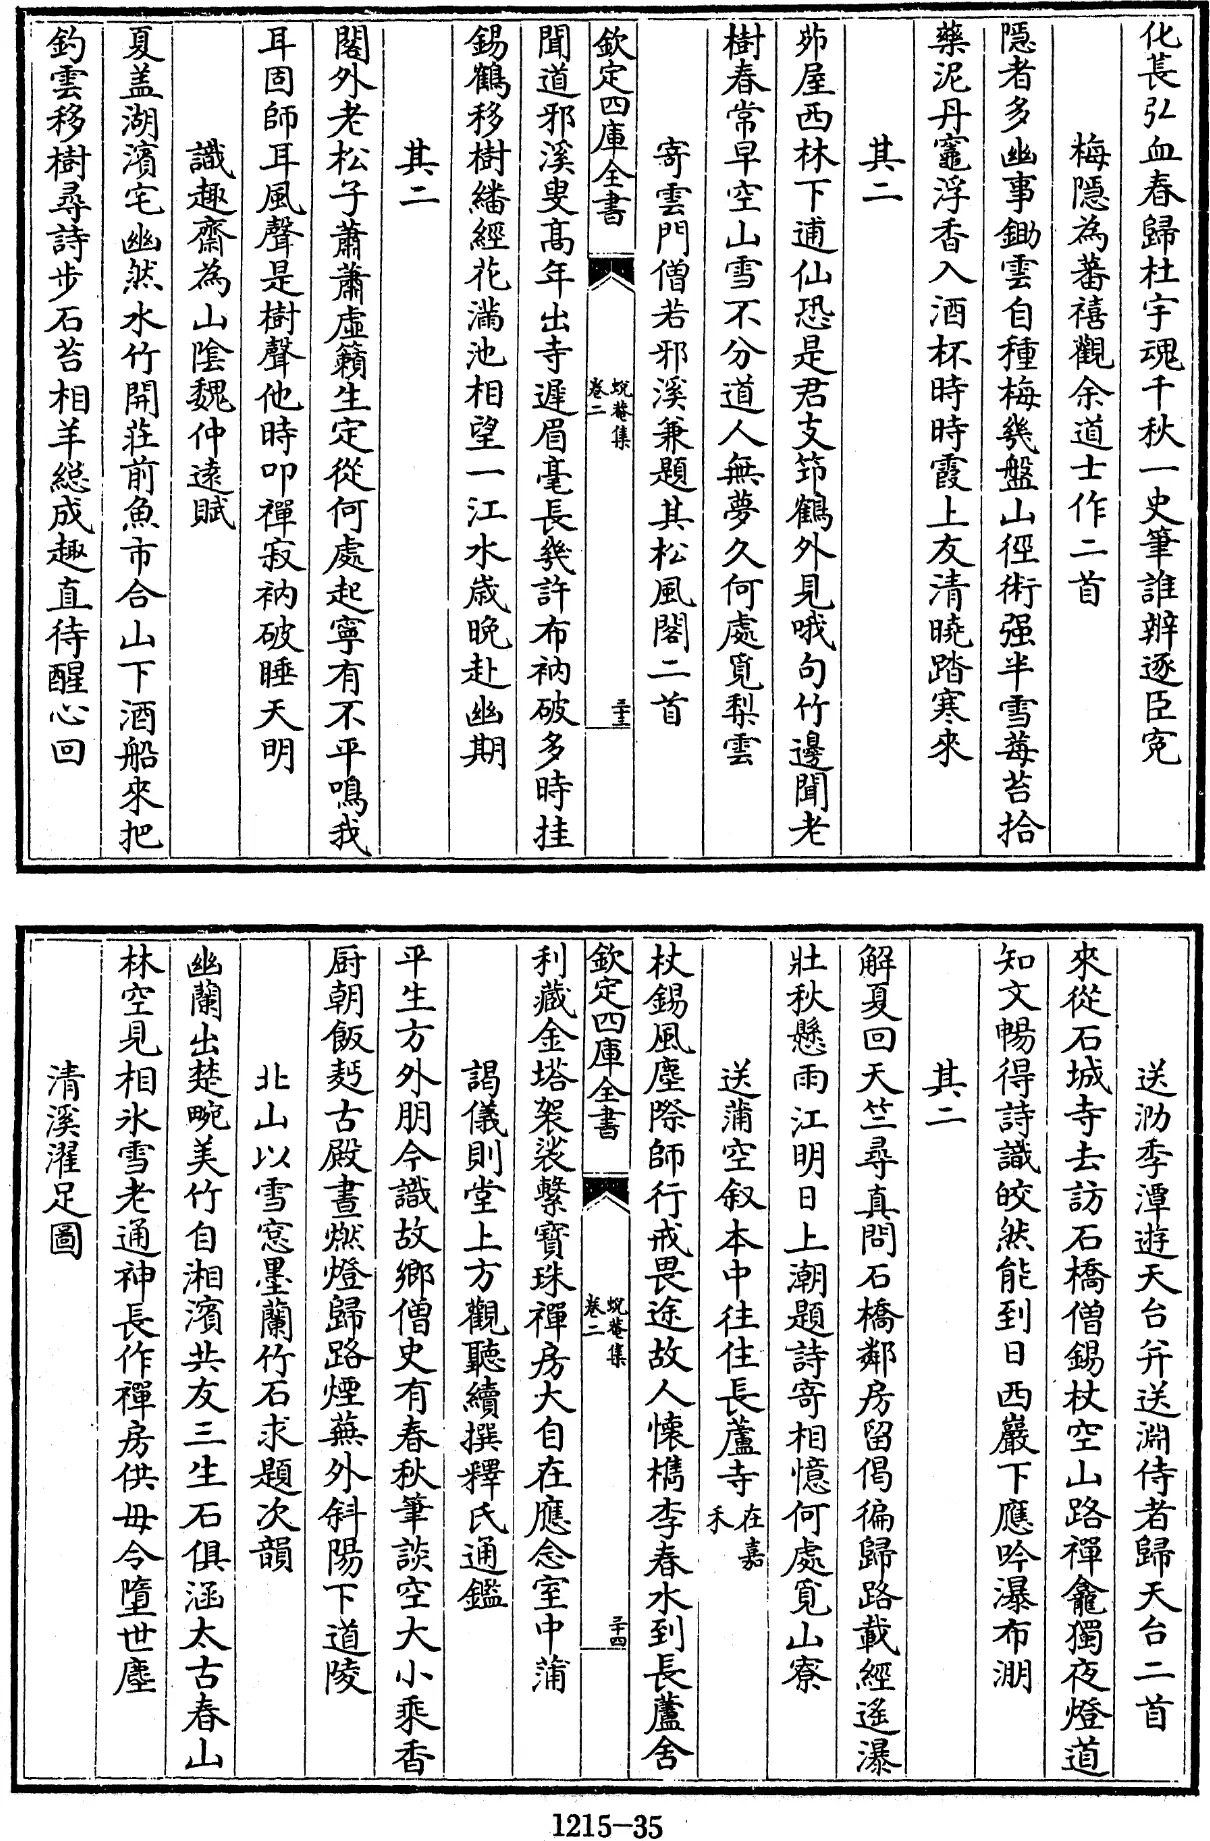 化萇弘血春歸杜宇魂千秋一史筆誰辨逐臣寃
梅隱為蕃禧觀余道士作二首
隱者多幽事鋤雲自種梅幾盤山徑術强半雪莓苔拾
藥泥丹竈浮香入酒杯時時霞上友清曉踏寒來
其二
茆屋西林下逋仙恐是君支筇鶴外見哦句竹邊聞老
樹春常早空山雪不分道人無夢久何處覓梨雲
寄雲門僧若邪溪兼題其松風閣二首
欽定四庫全書
蛻菴集
卷二
三十三
聞道邪溪叟髙年出寺遲眉毫長幾許布衲破多時挂
錫鶴移樹繙經花滿池相望一江水歲晩赴幽期
其二
閣外老松子蕭蕭虛籟生定從何處起寧有不平鳴我
耳固師耳風聲是樹聲他時叩禪寂衲破睡天明
識趣齋為山隂魏仲逺賦
夏盖湖濱宅幽然水竹開莊前魚市合山下酒船來把
釣雲移樹尋詩步石苔相羊総成趣直待醒心回
送泐季潭遊天台并送淵侍者歸天台二首
來從石城寺去訪石橋僧錫杖空山路禪龕獨夜燈道
知文暢得詩識皎然能到日西巖下應吟瀑布淜
其二
解夏回天竺尋真問石橋鄰房留偈徧歸路載經遙瀑
壯秋懸雨江明日上潮題詩寄相憶何處覓山寮
送蒲空叙本中徃住長蘆寺在嘉禾
杖錫風塵際師行戒畏途故人懷檇李春水到長蘆舍
欽定四庫全書
蛻菴集
卷二
三十四
利藏金塔袈裟繫寶珠禪房大自在應念室中蒲
謁儀則堂上方觀聽續撰釋氏通鑑
平生方外朋今識故鄉僧史有春秋筆談空大小乘香
厨朝飯麪古殿晝燃燈歸路煙蕪外斜陽下道陵
北山以雪窓墨蘭竹石求題次韻
幽蘭出楚畹美竹自湘濱共友三生石俱涵太古春山
林空見相氷雪老通神長作禪房供毋令墮世塵
清溪濯足圖
1215-35